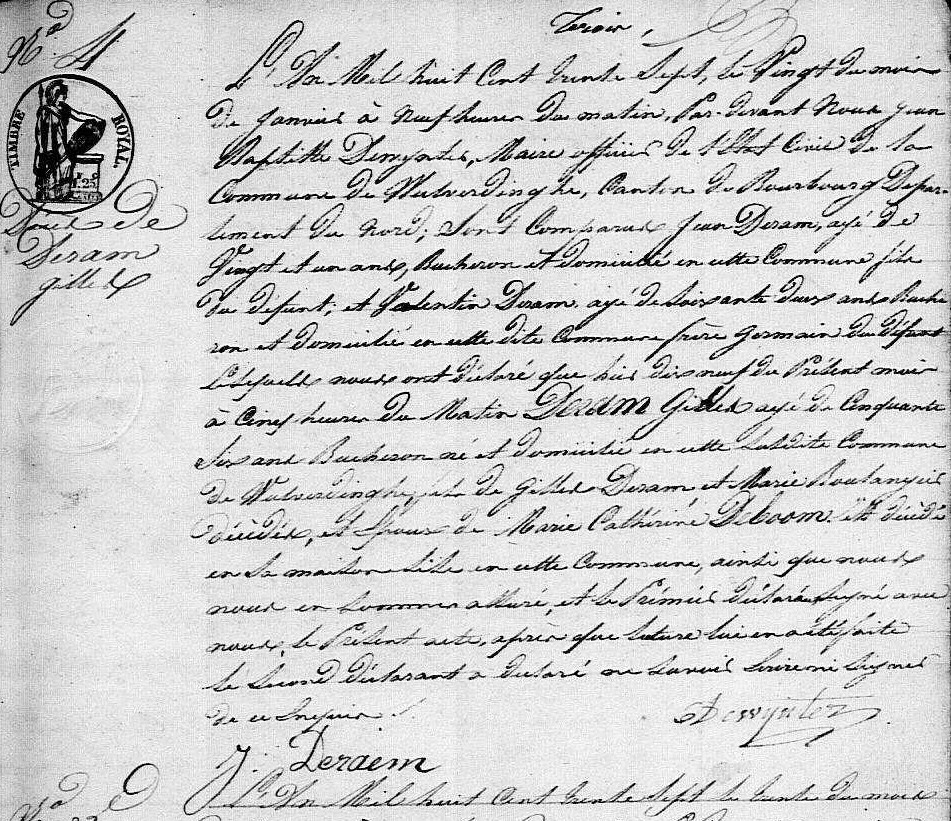 N° 4
TIMBRE ROYAL
1.25
Décès de
Deram
gilles
L'An Mil huit Cent trente Sept, le Vingt du mois
de janvier à neuf heures du matin, Par-devant Nous jean
Baptiste Dewynter, Maire officier de l'Etat Civil de la
Commune de Wulverdinghe, Canton de Bourbourg Depar-
tement du nord; Sont Comparus jean Deram, agé de
Vingt et un ans, Bucheron et domicilié en cette Commune fils
du defunt, et Valentin Deram, agé de Soixante deux ans Buche
ron et domicilié en cette dite Commune frère germain du défunt
lesquels nous ont déclaré que hier dix neuf du Présent mois
à Cinq heures du Matin Deram Gilles agé de Cinquante
Six ans Bucheron né et domicilié en cette Susdite Commune
de Wulverdinghe, fils de gilles Deram et Marie Boulangier
décédés, et Epoux de Marie Cathérine Deboom. est décédé
en Sa maison Sise en cette Commune, ainsi que nous
nous en Sommes assuré, et le Prémier déclarant Signé avec
nous, le Présent acte, après que lecture lui en a été faite
le Second déclarant a déclaré ne Savoir Ecrire ni Signer
de ce Enquis ./.
Dewynter
J. Deraem
L'An Mil huit Cent trente Sept le trente du mois